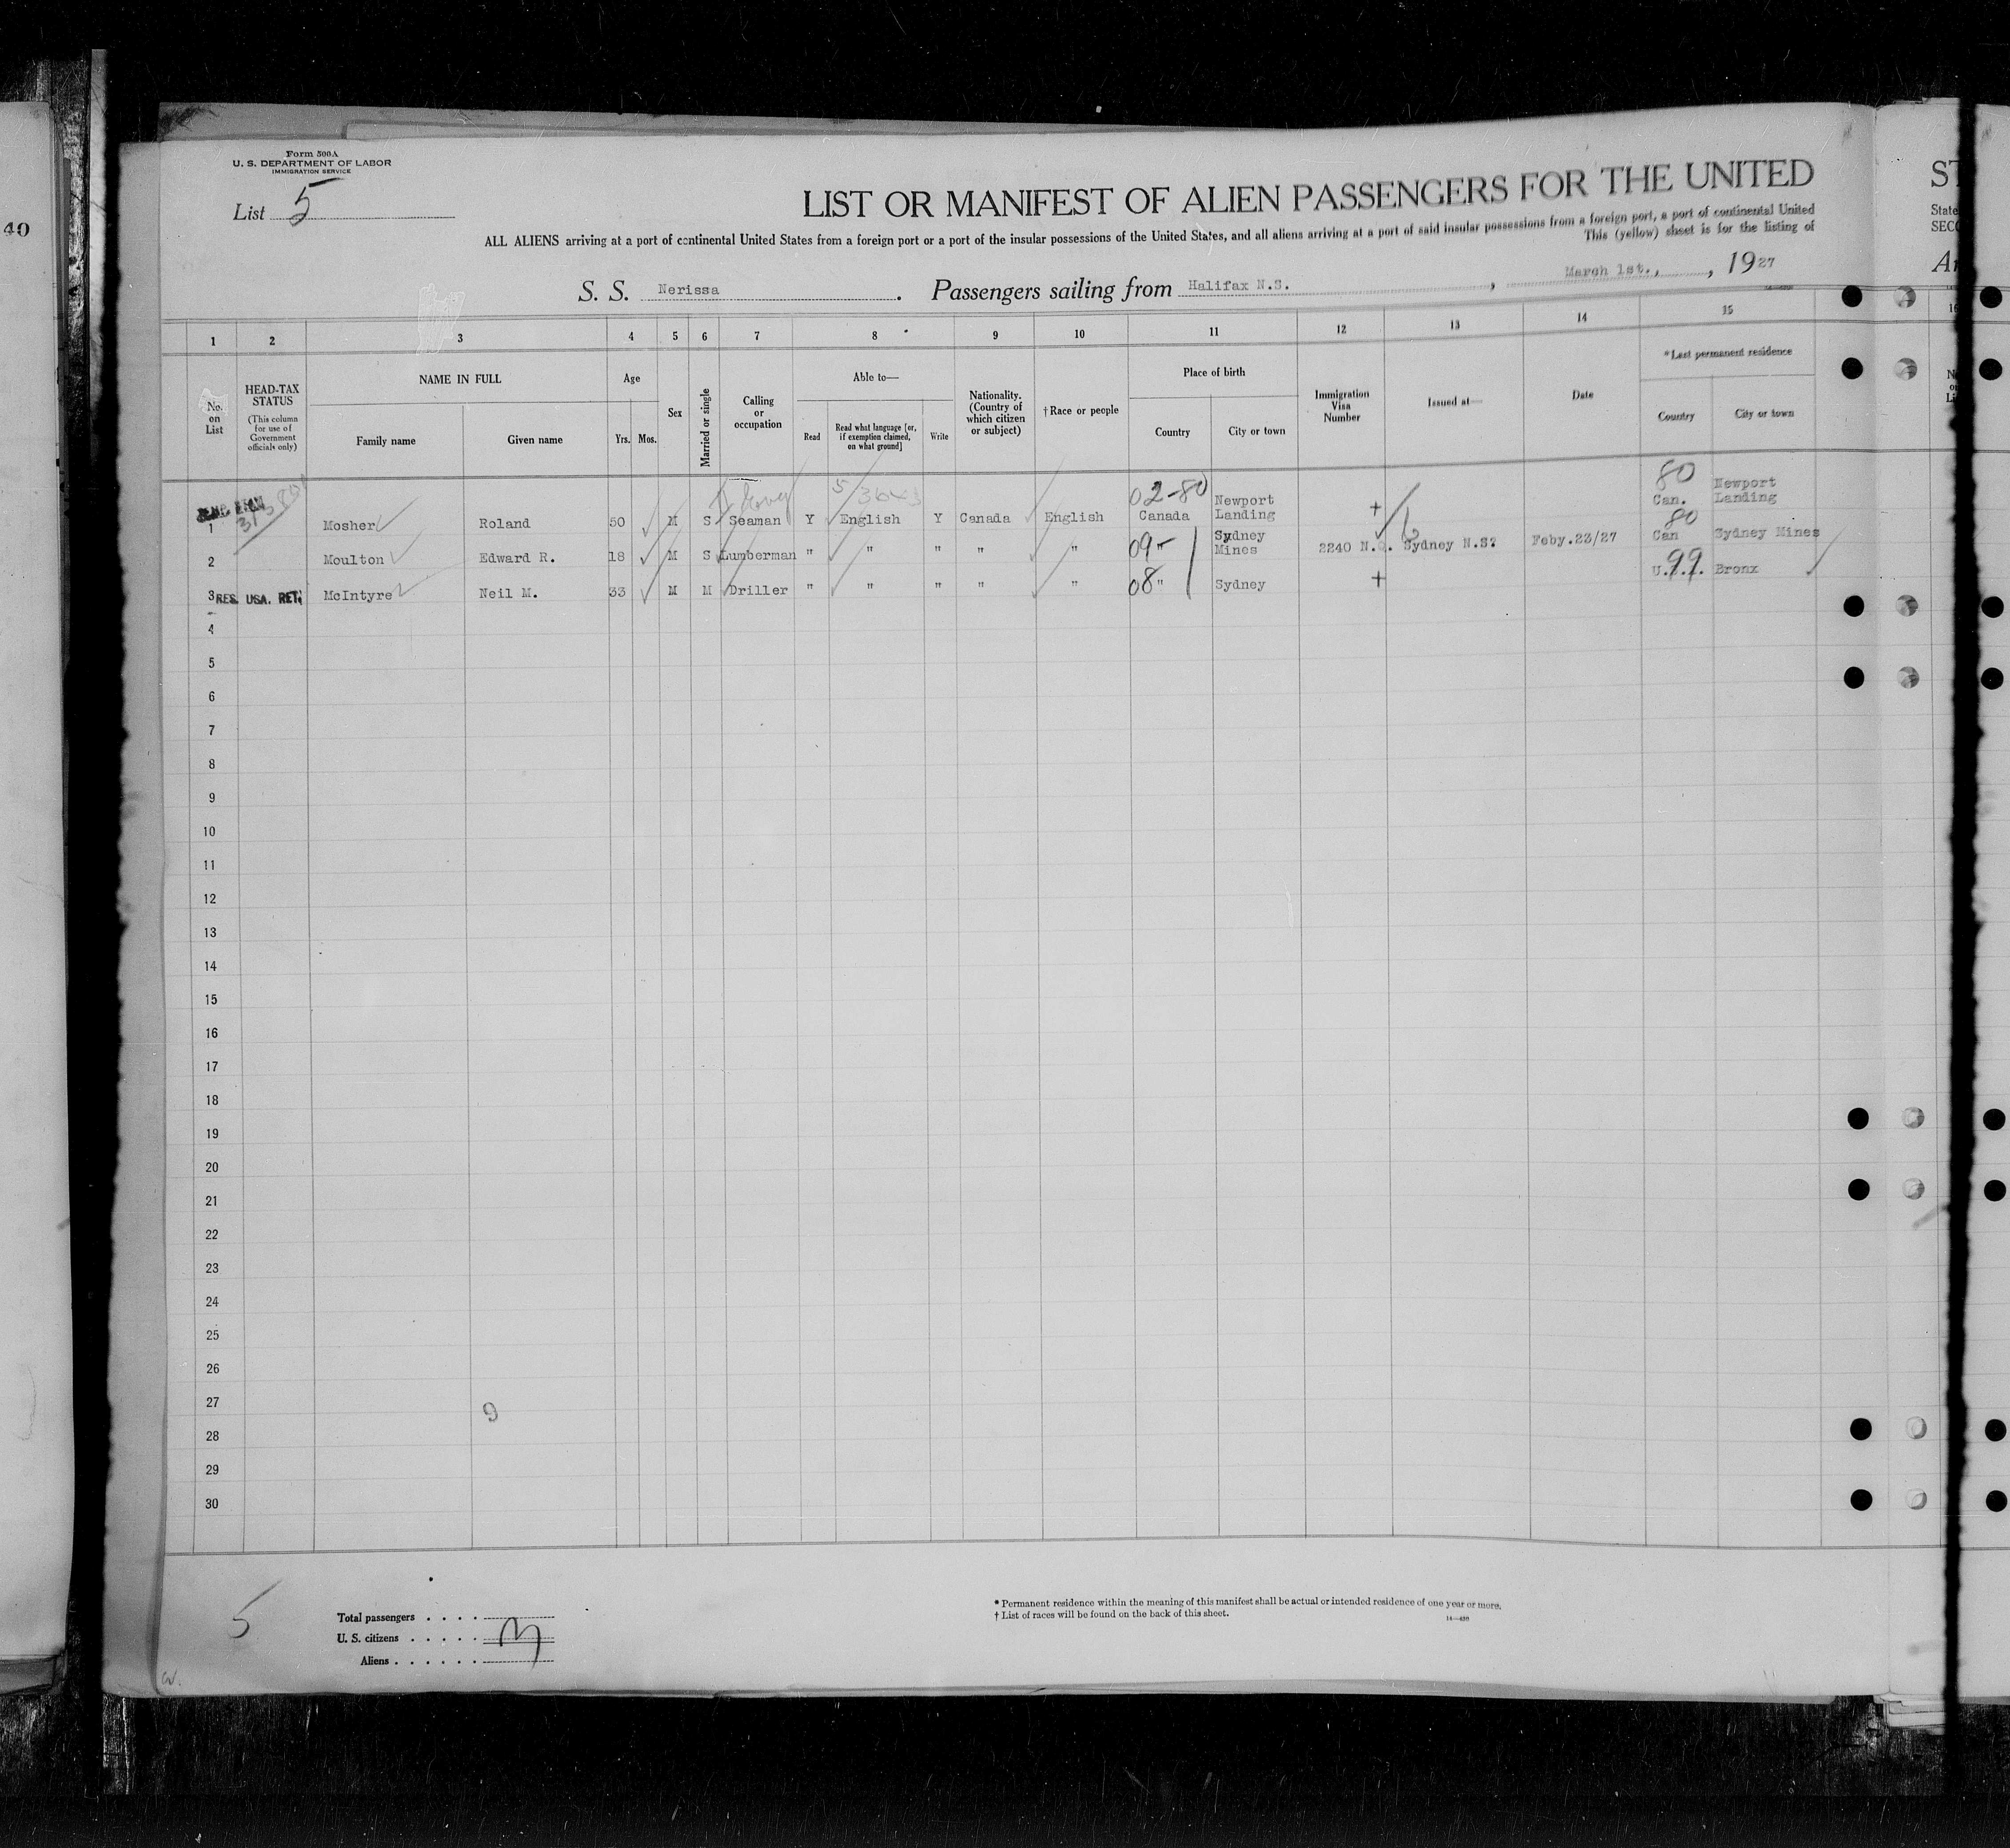 40
Form 500A
U. S. DEPARTMENT OF LABOR
IMMIGRATION SERVICE
List 5
LIST OR MANIFEST OF ALIEN PASSENGERS FOR THE UNITED
ST
ALL ALIENS arriving at a port of continental United States from a foreign port or a port of the insular possessions of the United States, and all aliens arriving at a port of said insular possessions from a foreign port, a port of continental United
State
This (yellow) sheet is for the listing of
SECO
S. S. Nerissa. Passengers sailing from Halifax N.S., March 1st., , 1927
1 2 3 4 5 6 7 8 9 10 11 12 13 14 15
No. on List
HEAD-TAX STATUS
(This column for use of Government officials only)
NAME IN FULL
Family name Given name
Age
Yrs. Mos.
Sex
Married or single
Calling or occupation
Able to—
Read
Read what language [or, if exemption claimed, on what ground]
Write
Nationality. (Country of which citizen or subject)
† Race or people
Place of birth
Country City or town
Immigration Visa Number
Issued at—
Date
* Last permanent residence
Country City or town
02-80 80
1 Mosher Roland 50 M S Seaman Y English Y Canada English Canada Newport Landing + Can. Newport Landing
80
2 Moulton Edward R. 18 M S Lumberman " " " " " 09 " Sydney Mines 2240 N.Q. Sydney N.S? Feby.23/27 Can Sydney Mines
3 RES. USA. RET. McIntyre Neil M. 33 M M Driller " " " " " 08 " Sydney + U. 99. Bronx
4
5
6
7
8
9
10
11
12
13
14
15
16
17
18
19
20
21
22
23
24
25
26
27
9
28
29
30
5
Total passengers . . . .
U. S. citizens . . . . .
Aliens . . . . . .
* Permanent residence within the meaning of this manifest shall be actual or intended residence of one year or more.
† List of races will be found on the back of this sheet.
14—430